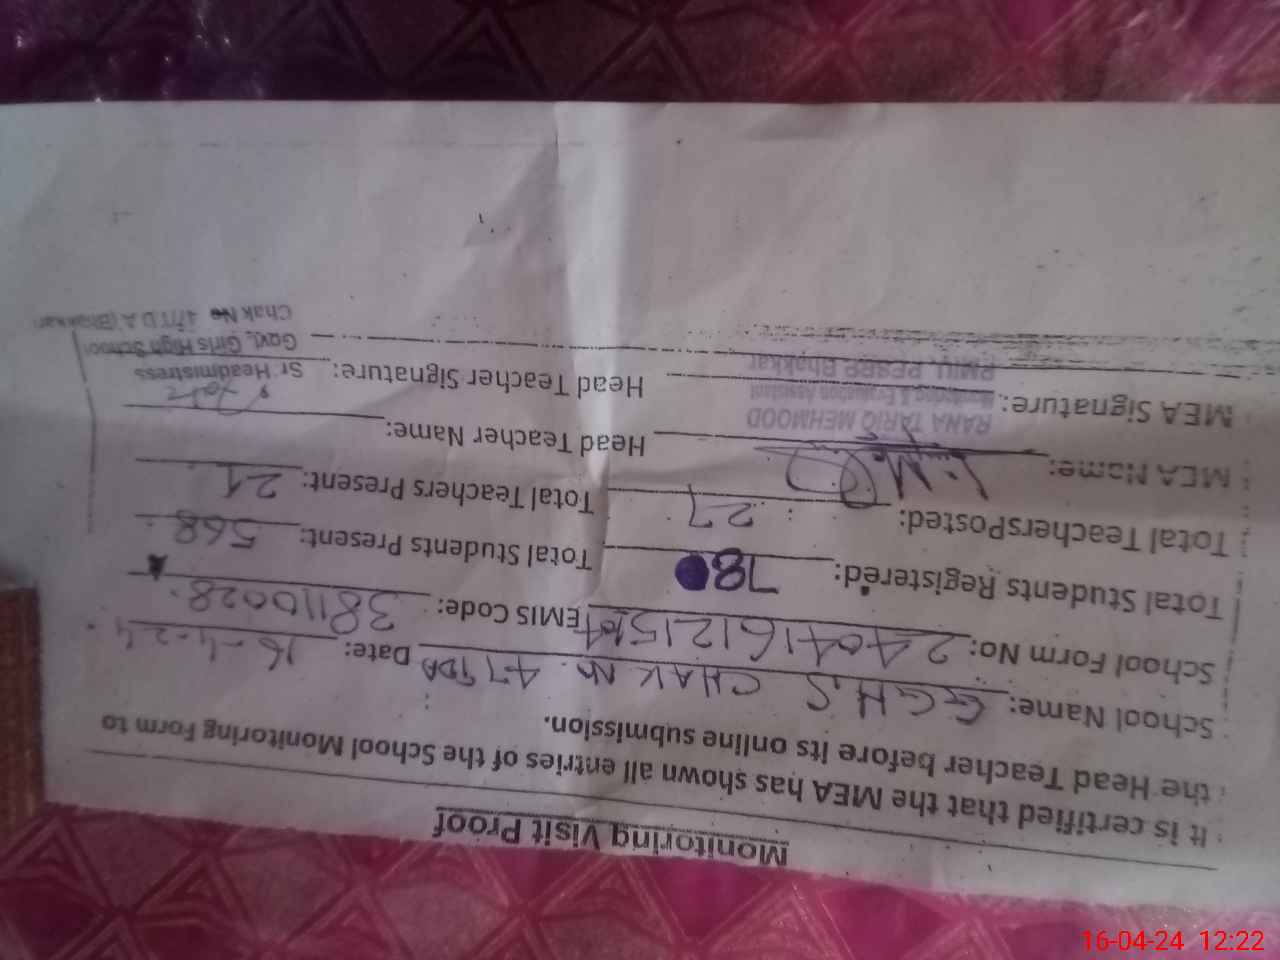 Monitoring Visit Proof
It is certified that the MEA has shown all entries of the School Monitoring Form to
the Head Teacher before its online submission.
School Name: G.G.H.S CHAK No. 47TDA Date: 16-4-24
School Form No: EMIS Code: 38110028
Total Students Registered: 78 Total Students Present: 568
Total TeachersPosted: 27 Total Teachers Present: 21
MEA Name: Head Teacher Name:
RANA TARIQ MEHMOOD
Monitoring & Evaluation Assistant
PMIU, PESRP Bhakkar
MEA Signature: Head Teacher Signature:
Sr. Headmistress
Govt. Girls High School
Chak No 47T.D.A (Bhakkar)
16-04-24 12:22